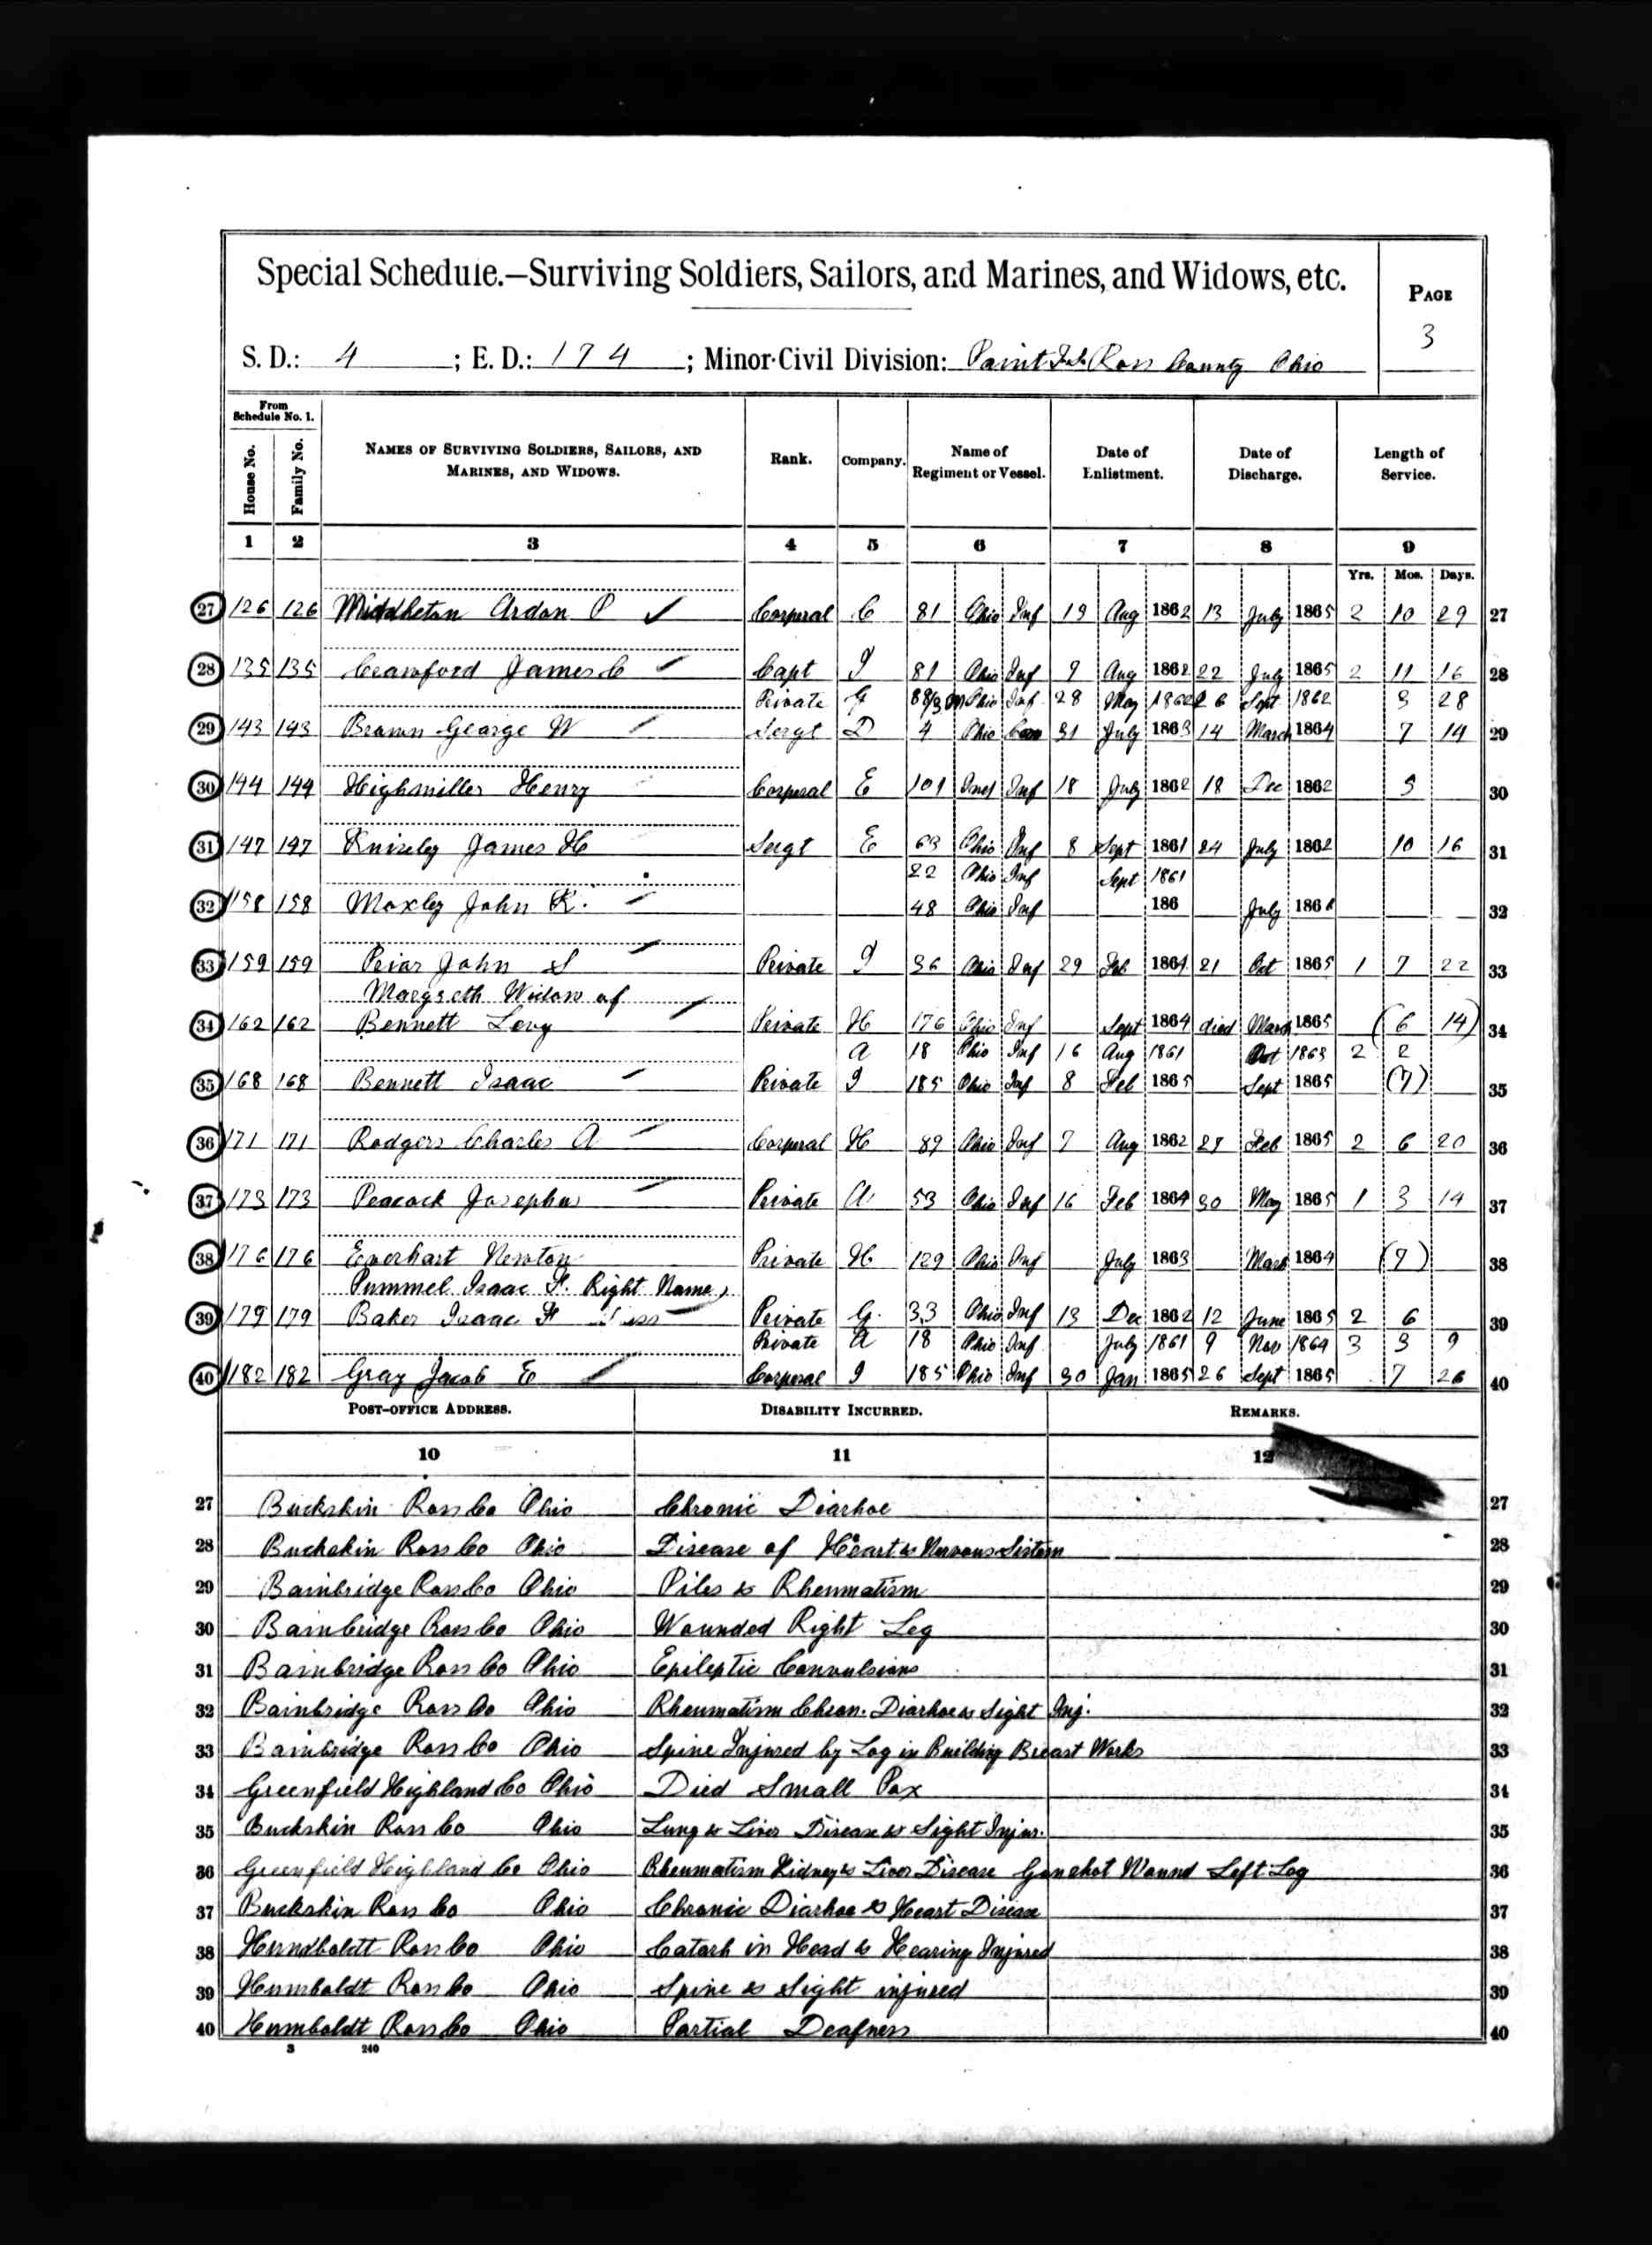 Special Schedule.—Surviving Soldiers, Sailors, and Marines, and Widows, etc.
PAGE
3
S. D.: 4 ; E. D.: 174 ; Minor Civil Division: Paint Ross County Ohio
From Schedule No. 1.
House No. Family No. NAMES OF SURVIVING SOLDIERS, SAILORS, AND MARINES, AND WIDOWS. Rank. Company. Name of Regiment or Vessel. Date of Enlistment. Date of Discharge. Length of Service.
1 2 3 4 5 6 7 8 9
Yrs. Mos. Days.
27 126 126 Middleton Ardon P Corporal C 81 Ohio Inf 19 Aug 1862 13 July 1865 2 10 29 27
28 135 135 Crawford James C Capt I 81 Ohio Inf 9 Aug 1862 22 July 1865 2 11 16 28
Private G 88/3 M Ohio Inf 28 May 1862 26 Sept 1862 3 28
29 143 143 Brown George W Sergt D 4 Ohio 31 July 1863 14 March 1864 7 14 29
30 144 144 Highmiller Henry Corporal E 101 Inf 18 July 1862 18 Dec 1862 5 30
31 147 147 Knisley James H Sergt E 63 Ohio Inf 8 Sept 1861 24 July 1862 10 16 31
22 Ohio Inf Sept 1861
32 158 158 Moxley John R. 48 Ohio Inf 186 July 186 32
33 159 159 John S Private I 36 Ohio Inf 29 Feb 1864 21 Oct 1865 1 7 22 33
Margreth Widow of
34 162 162 Bennett Levy Private H 176 Ohio Inf Sept 1864 died March 1865 (6 14) 34
A 18 Ohio Inf 16 Aug 1861 Oct 1863 2 2
35 168 168 Bennett Isaac Private I 185 Ohio Inf 8 Feb 1865 Sept 1865 (7) 35
36 171 171 Rodgers Charles A Corporal H 89 Ohio Inf 7 Aug 1862 27 Feb 1865 2 6 20 36
37 173 173 Peacock Josephus Private A 53 Ohio Inf 16 Feb 1864 30 May 1865 1 3 14 37
38 176 176 Everhart Newton Private H 129 Ohio Inf July 1863 March 1864 (7) 38
Pummel Isaac F. Right Name,
39 179 179 Baker Isaac F Private G. 33 Ohio Inf 13 Dec 1862 12 June 1865 2 6 39
Private A 18 Ohio Inf July 1861 9 Nov 1864 3 3 9
40 182 182 Gray Jacob E Corporal I 185 Ohio Inf 30 Jan 1865 26 Sept 1865 7 26 40
POST-OFFICE ADDRESS. DISABILITY INCURRED. REMARKS.
10 11 12
27 Buckskin Ross Co Ohio Chronic Diarhoe 27
28 Buckskin Ross Co Ohio Disease of Heart & Nervous Sistem 28
29 Bainbridge Ross Co Ohio Piles & Rheumatism 29
30 Bainbridge Ross Co Ohio Wounded Right Leg 30
31 Bainbridge Ross Co Ohio Epileptic Convulsions 31
32 Bainbridge Ross Co Ohio Rheumatism Chron. Diarhoe & Sight Inj. 32
33 Bainbridge Ross Co Ohio Spine Injured by Log in Building Breast Works 33
34 Greenfield Highland Co Ohio Died Small Pox 34
35 Buckskin Ross Co Ohio Lung & Liver Disease & Sight Injur. 35
36 Greenfield Highland Co Ohio Rheumatism Kidney & Liver Disease Gunshot Wound Left Leg 36
37 Buckskin Ross Co Ohio Chronic Diarhoe & Heart Disease 37
38 Humdboldt Ross Co Ohio Catarh in Head & Hearing Injured 38
39 Humboldt Ross Co Ohio Spine & Sight injured 39
40 Humboldt Ross Co Ohio Partial Deafness 40
3 240